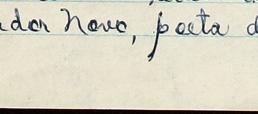 dor Novo, poeta d